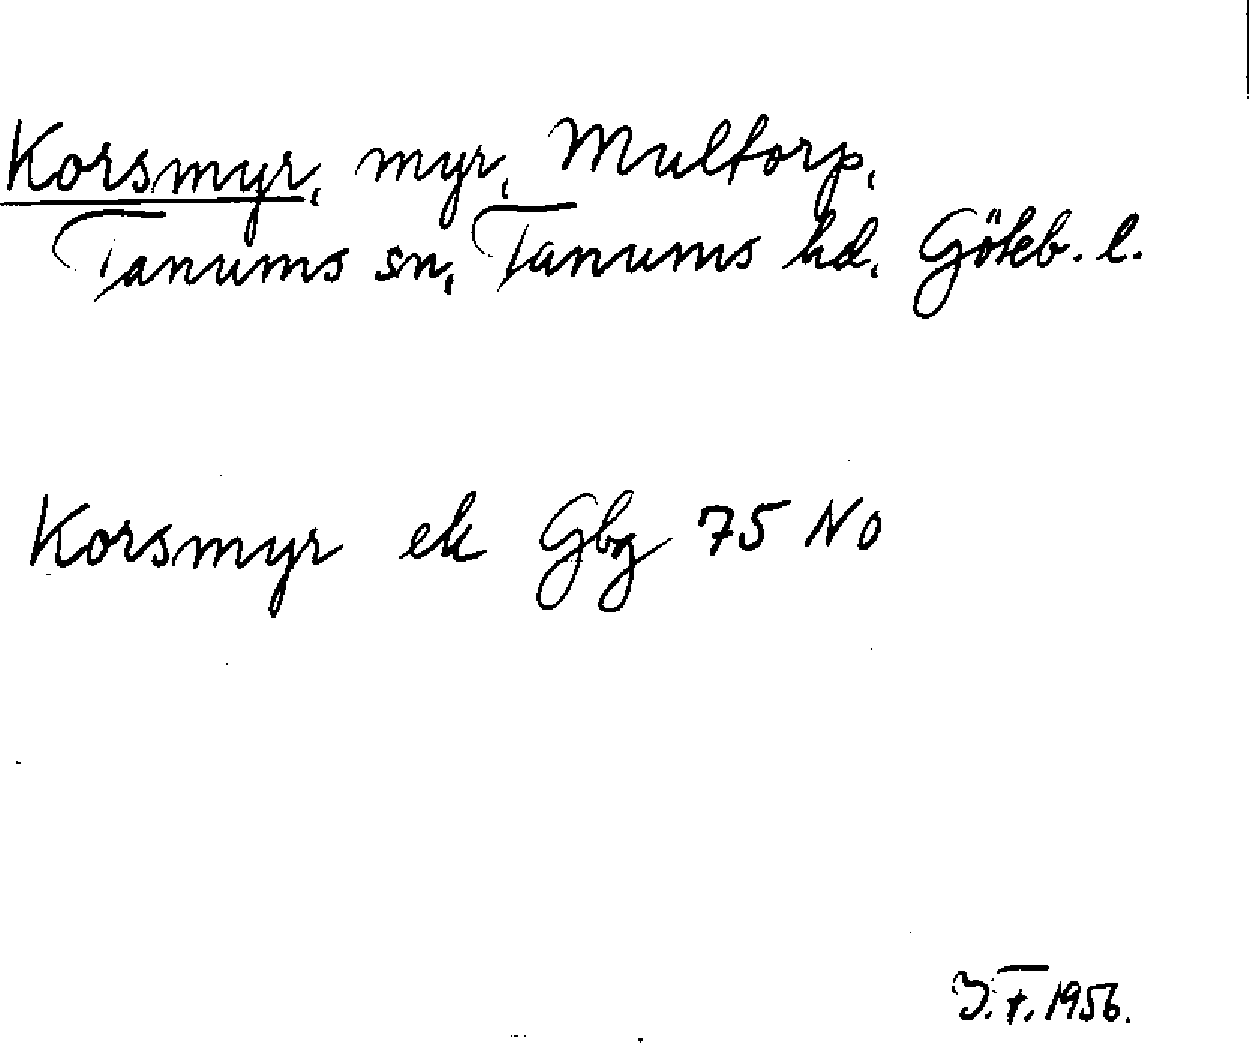 Korsmyr, myr, Multorp,
Tanums sn, Tanums hd. Gökb. l.
Korsmyr ek Gbg 75 NO
J.T. 1956.